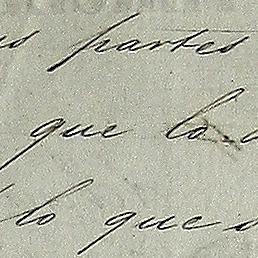 partes
que lo
lo que